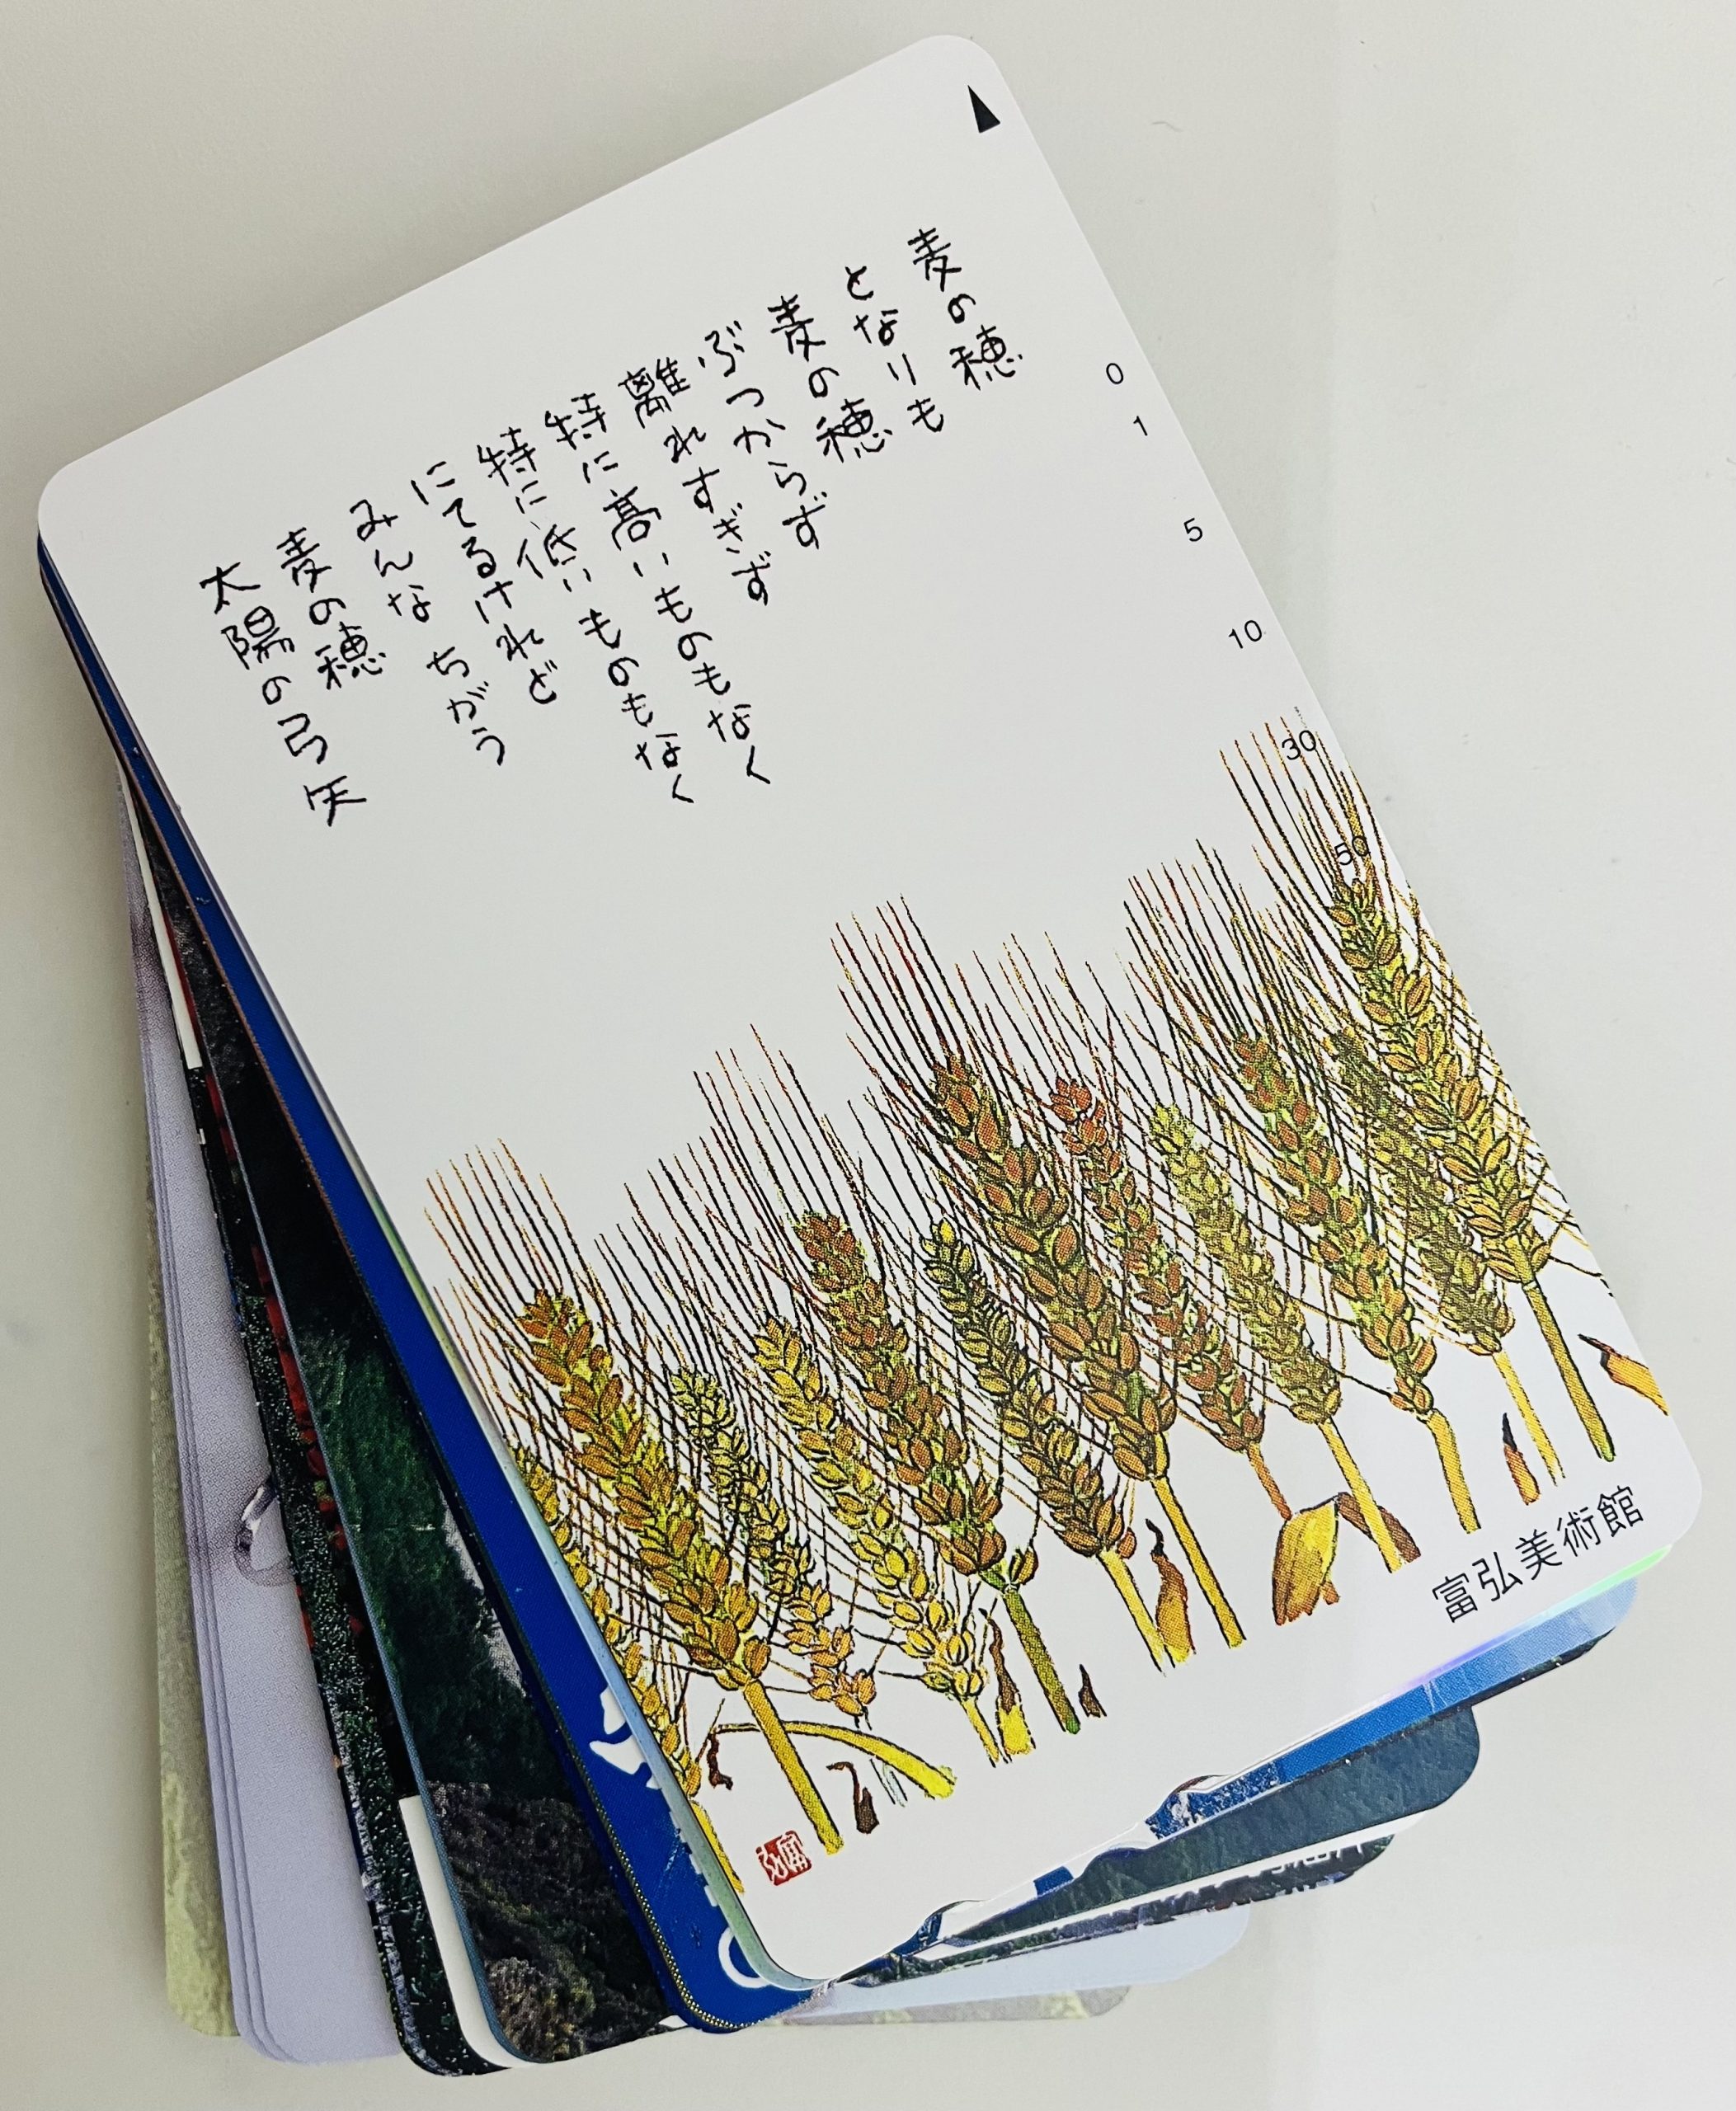 麦の穂
となりも
麦の穂
ぶつからず
離れすぎず
特に高いものもなく
特に低いものもなく
にてるけれど
みんな ちがう
麦の穂
太陽の弓矢
0
1
5
10
30
50
富弘美術館